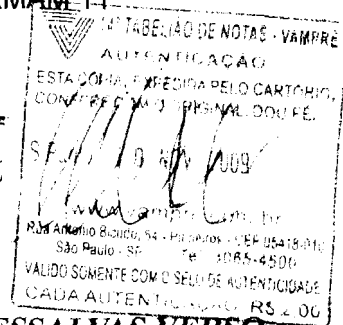 14º TABELIÃO DE NOTAS - VAMPRÉ
AUTENTICAÇÃO
ESTA CÓPIA, EXPEDIDA PELO CARTÓRIO,
CONFERE COM O ORIGINAL. DOU FÉ.
NOV 2009
Rua Antonio Bicudo, 64 - Pinheiros - CEP 05418-010
São Paulo - SP Tel 3065-4500
VÁLIDO SOMENTE COM O SELO DE AUTENTICIDADE
CADA AUTENTICAÇÃO R$ 2,00